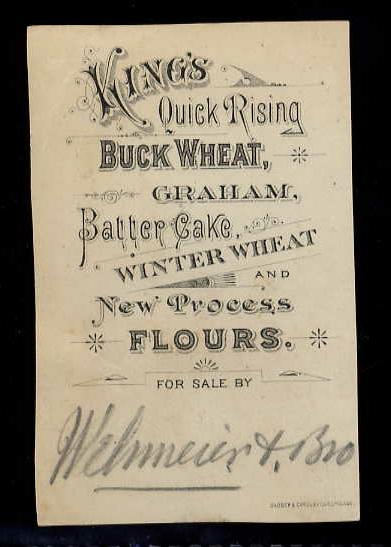 KING'S
Quick Rising
BUCK WHEAT,
GRAHAM,
Batter Cake,
WINTER WHEAT
AND
New Process
FLOURS.
FOR SALE BY
Wehmeier & Bro